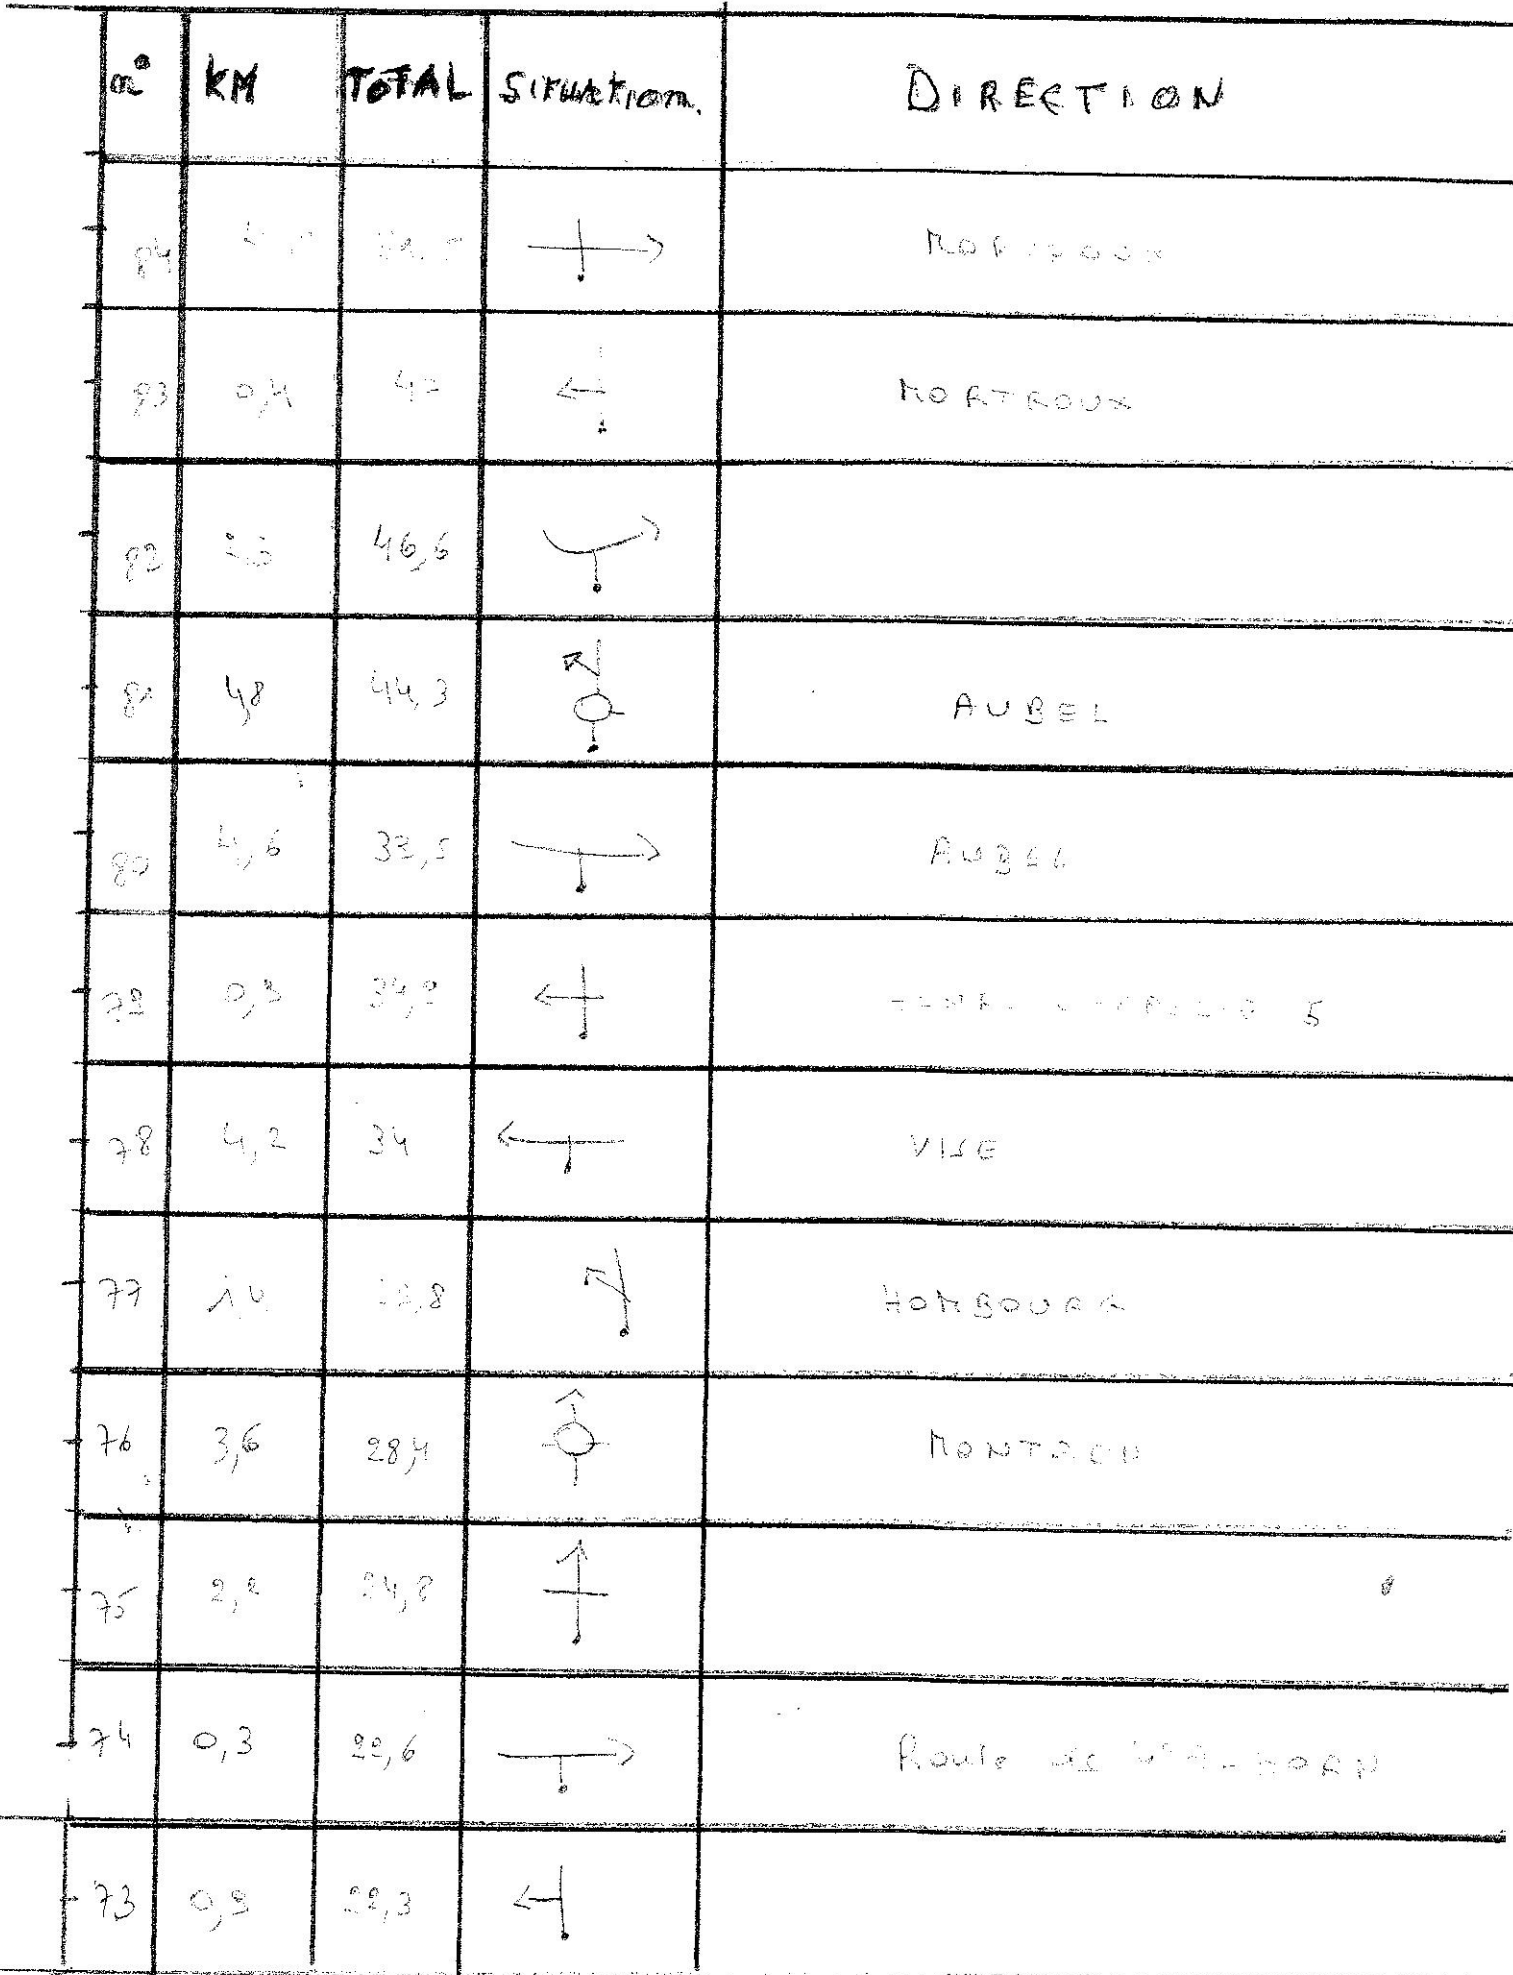 n° KM TOTAL Situation. DIRECTION
84
83 0,4 47 MORTROUX
82 46,6
81 4,8 44,3 AUBEL
80 4,6 39,5 AUBEL
79 0,9 34,9 5
78 4,2 34 VISE
77 8 HOMBOURG
76 3,6 28,4 MONTZEN
75 2,2 24,8
74 0,3 22,6 Route de
73 0,9 22,3